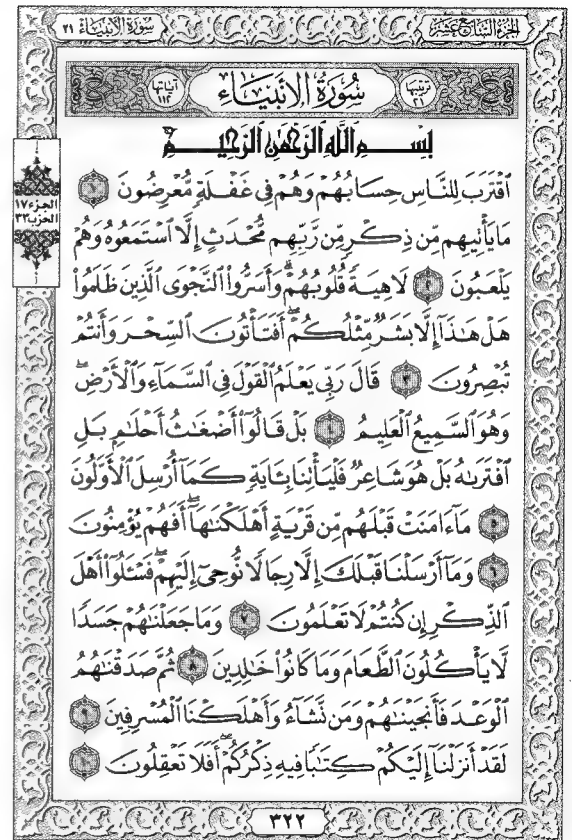 سُورَةُ الأَنْبِيَاءِ ٢١
الجُزْءُ السَّابِعَ عَشَرَ
ترتيبها ٢١
سُورَةُ الأَنْبِيَاءِ
آياتها ١١٢
بِسْمِ ٱللَّهِ ٱلرَّحْمَٰنِ ٱلرَّحِيمِ
ٱقْتَرَبَ لِلنَّاسِ حِسَابُهُمْ وَهُمْ فِى غَفْلَةٍ مُّعْرِضُونَ ١
مَا يَأْتِيهِم مِّن ذِكْرٍ مِّن رَّبِّهِم مُّحْدَثٍ إِلَّا ٱسْتَمَعُوهُ وَهُمْ
يَلْعَبُونَ ٢ لَاهِيَةً قُلُوبُهُمْ ۗ وَأَسَرُّوا۟ ٱلنَّجْوَى ٱلَّذِينَ ظَلَمُوا۟
هَلْ هَٰذَآ إِلَّا بَشَرٌ مِّثْلُكُمْ ۖ أَفَتَأْتُونَ ٱلسِّحْرَ وَأَنتُمْ
تُبْصِرُونَ ٣ قَالَ رَبِّى يَعْلَمُ ٱلْقَوْلَ فِى ٱلسَّمَآءِ وَٱلْأَرْضِ ۖ
وَهُوَ ٱلسَّمِيعُ ٱلْعَلِيمُ ٤ بَلْ قَالُوٓا۟ أَضْغَٰثُ أَحْلَٰمٍ بَلِ
ٱفْتَرَىٰهُ بَلْ هُوَ شَاعِرٌ فَلْيَأْتِنَا بِـَٔايَةٍ كَمَآ أُرْسِلَ ٱلْأَوَّلُونَ
٥ مَآ ءَامَنَتْ قَبْلَهُم مِّن قَرْيَةٍ أَهْلَكْنَٰهَآ ۖ أَفَهُمْ يُؤْمِنُونَ
٦ وَمَآ أَرْسَلْنَا قَبْلَكَ إِلَّا رِجَالًا نُّوحِىٓ إِلَيْهِمْ ۖ فَسْـَٔلُوٓا۟ أَهْلَ
ٱلذِّكْرِ إِن كُنتُمْ لَا تَعْلَمُونَ ٧ وَمَا جَعَلْنَٰهُمْ جَسَدًا
لَّا يَأْكُلُونَ ٱلطَّعَامَ وَمَا كَانُوا۟ خَٰلِدِينَ ٨ ثُمَّ صَدَقْنَٰهُمُ
ٱلْوَعْدَ فَأَنجَيْنَٰهُمْ وَمَن نَّشَآءُ وَأَهْلَكْنَا ٱلْمُسْرِفِينَ ٩
لَقَدْ أَنزَلْنَآ إِلَيْكُمْ كِتَٰبًا فِيهِ ذِكْرُكُمْ ۖ أَفَلَا تَعْقِلُونَ ١٠
الجزء ١٧
الحزب ٣٣
٣٢٢